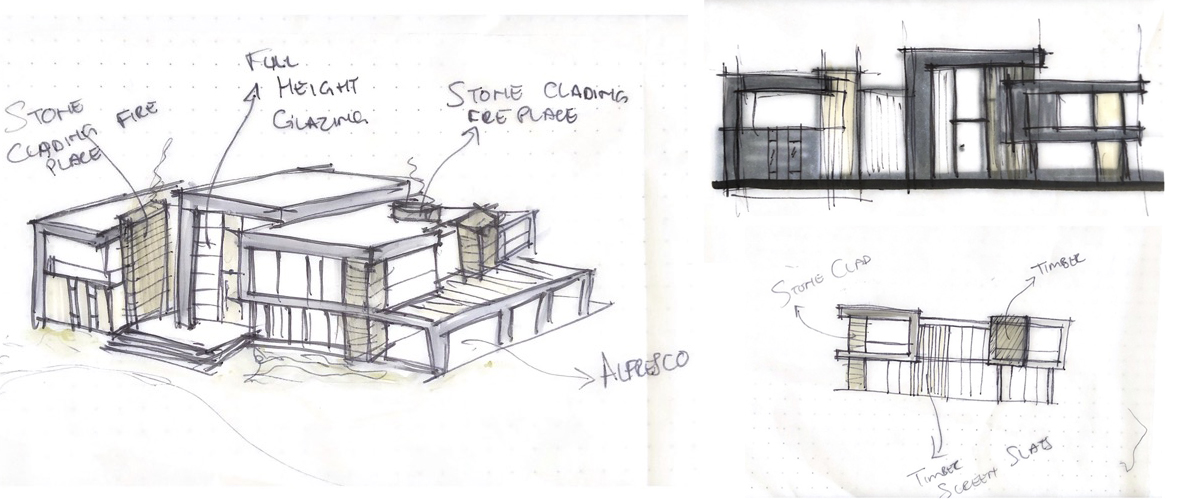 STONE
CLADING FIRE
PLACE
FULL
HEIGHT
GLAZING
STONE CLADING
FIREPLACE
ALFRESCO
STONE CLAD
TIMBER
TIMBER
SCREEN SLATS